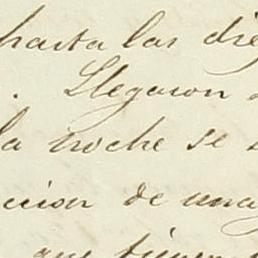 hasta las die
. Llegaron
la noche se
ccion de una
que tienen